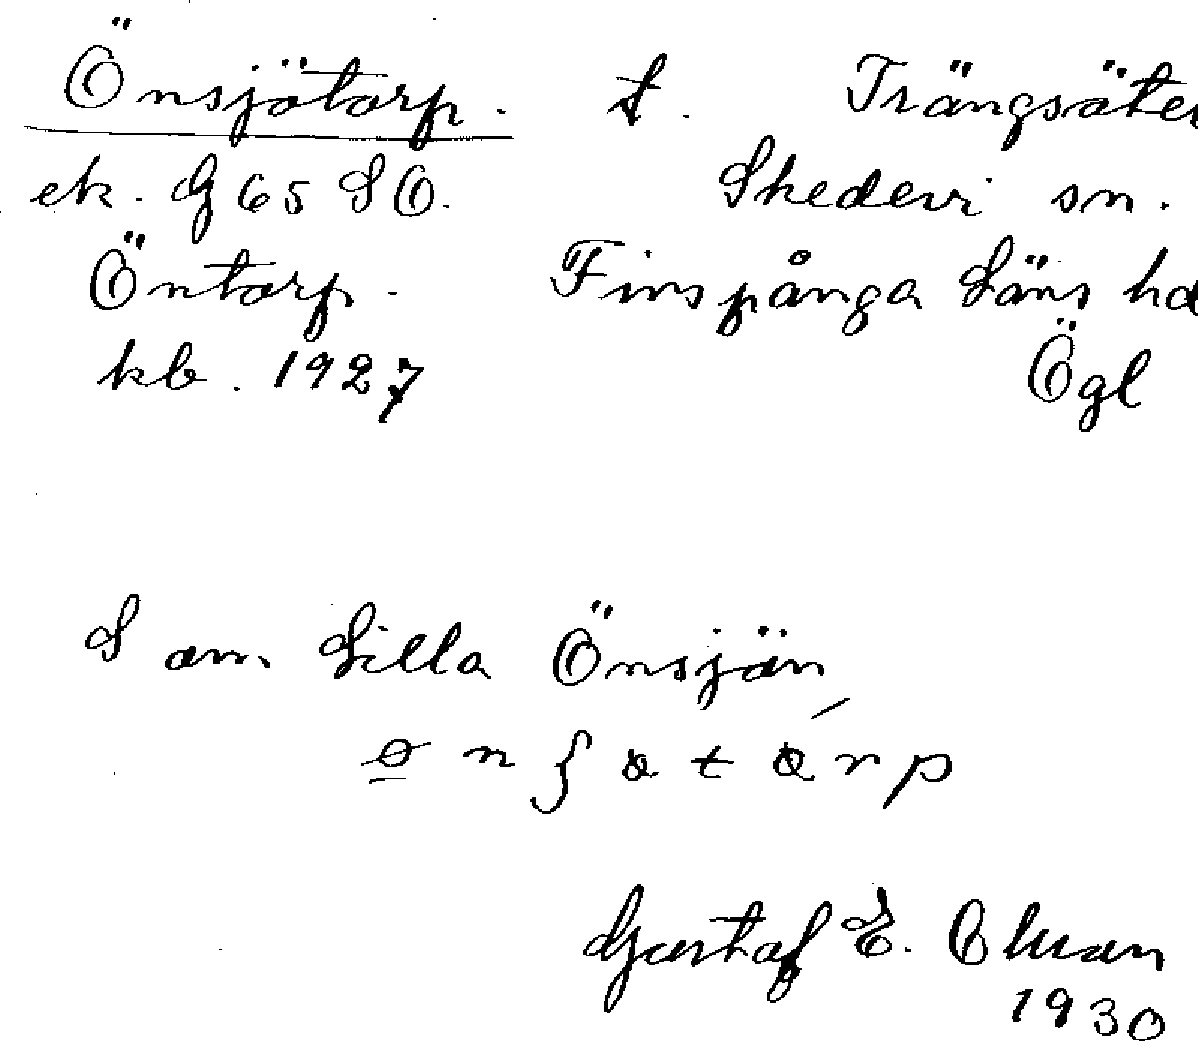 Önsjötorp. t. Trängsäter
ek. G 65 SO. Skedevi sn.
Öntorp. Finspånga Läns hd
kb. 1927 Ögl
S om Lilla Önsjön
Gustaf E.
1930